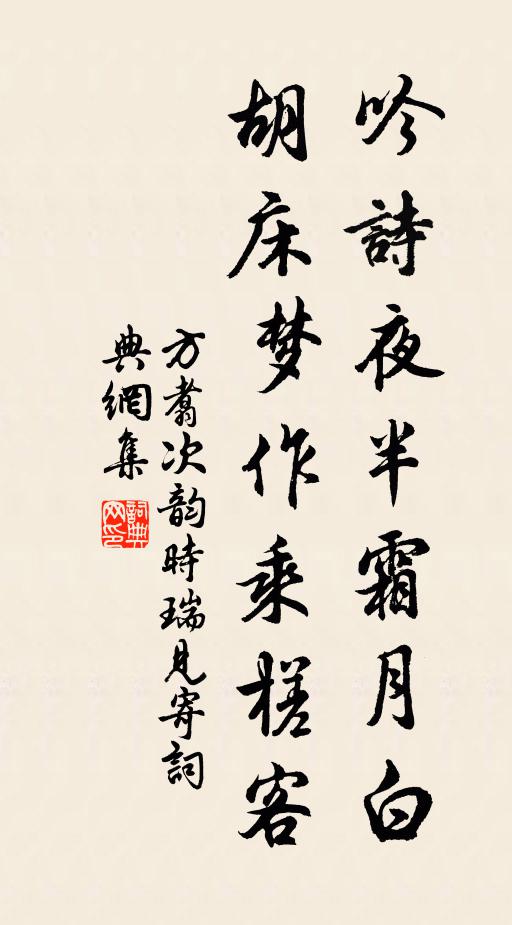 吟詩夜半霜月白
胡床梦作乘槎客
方翥次韵時瑞見寄詞
典網集
詞典
网印